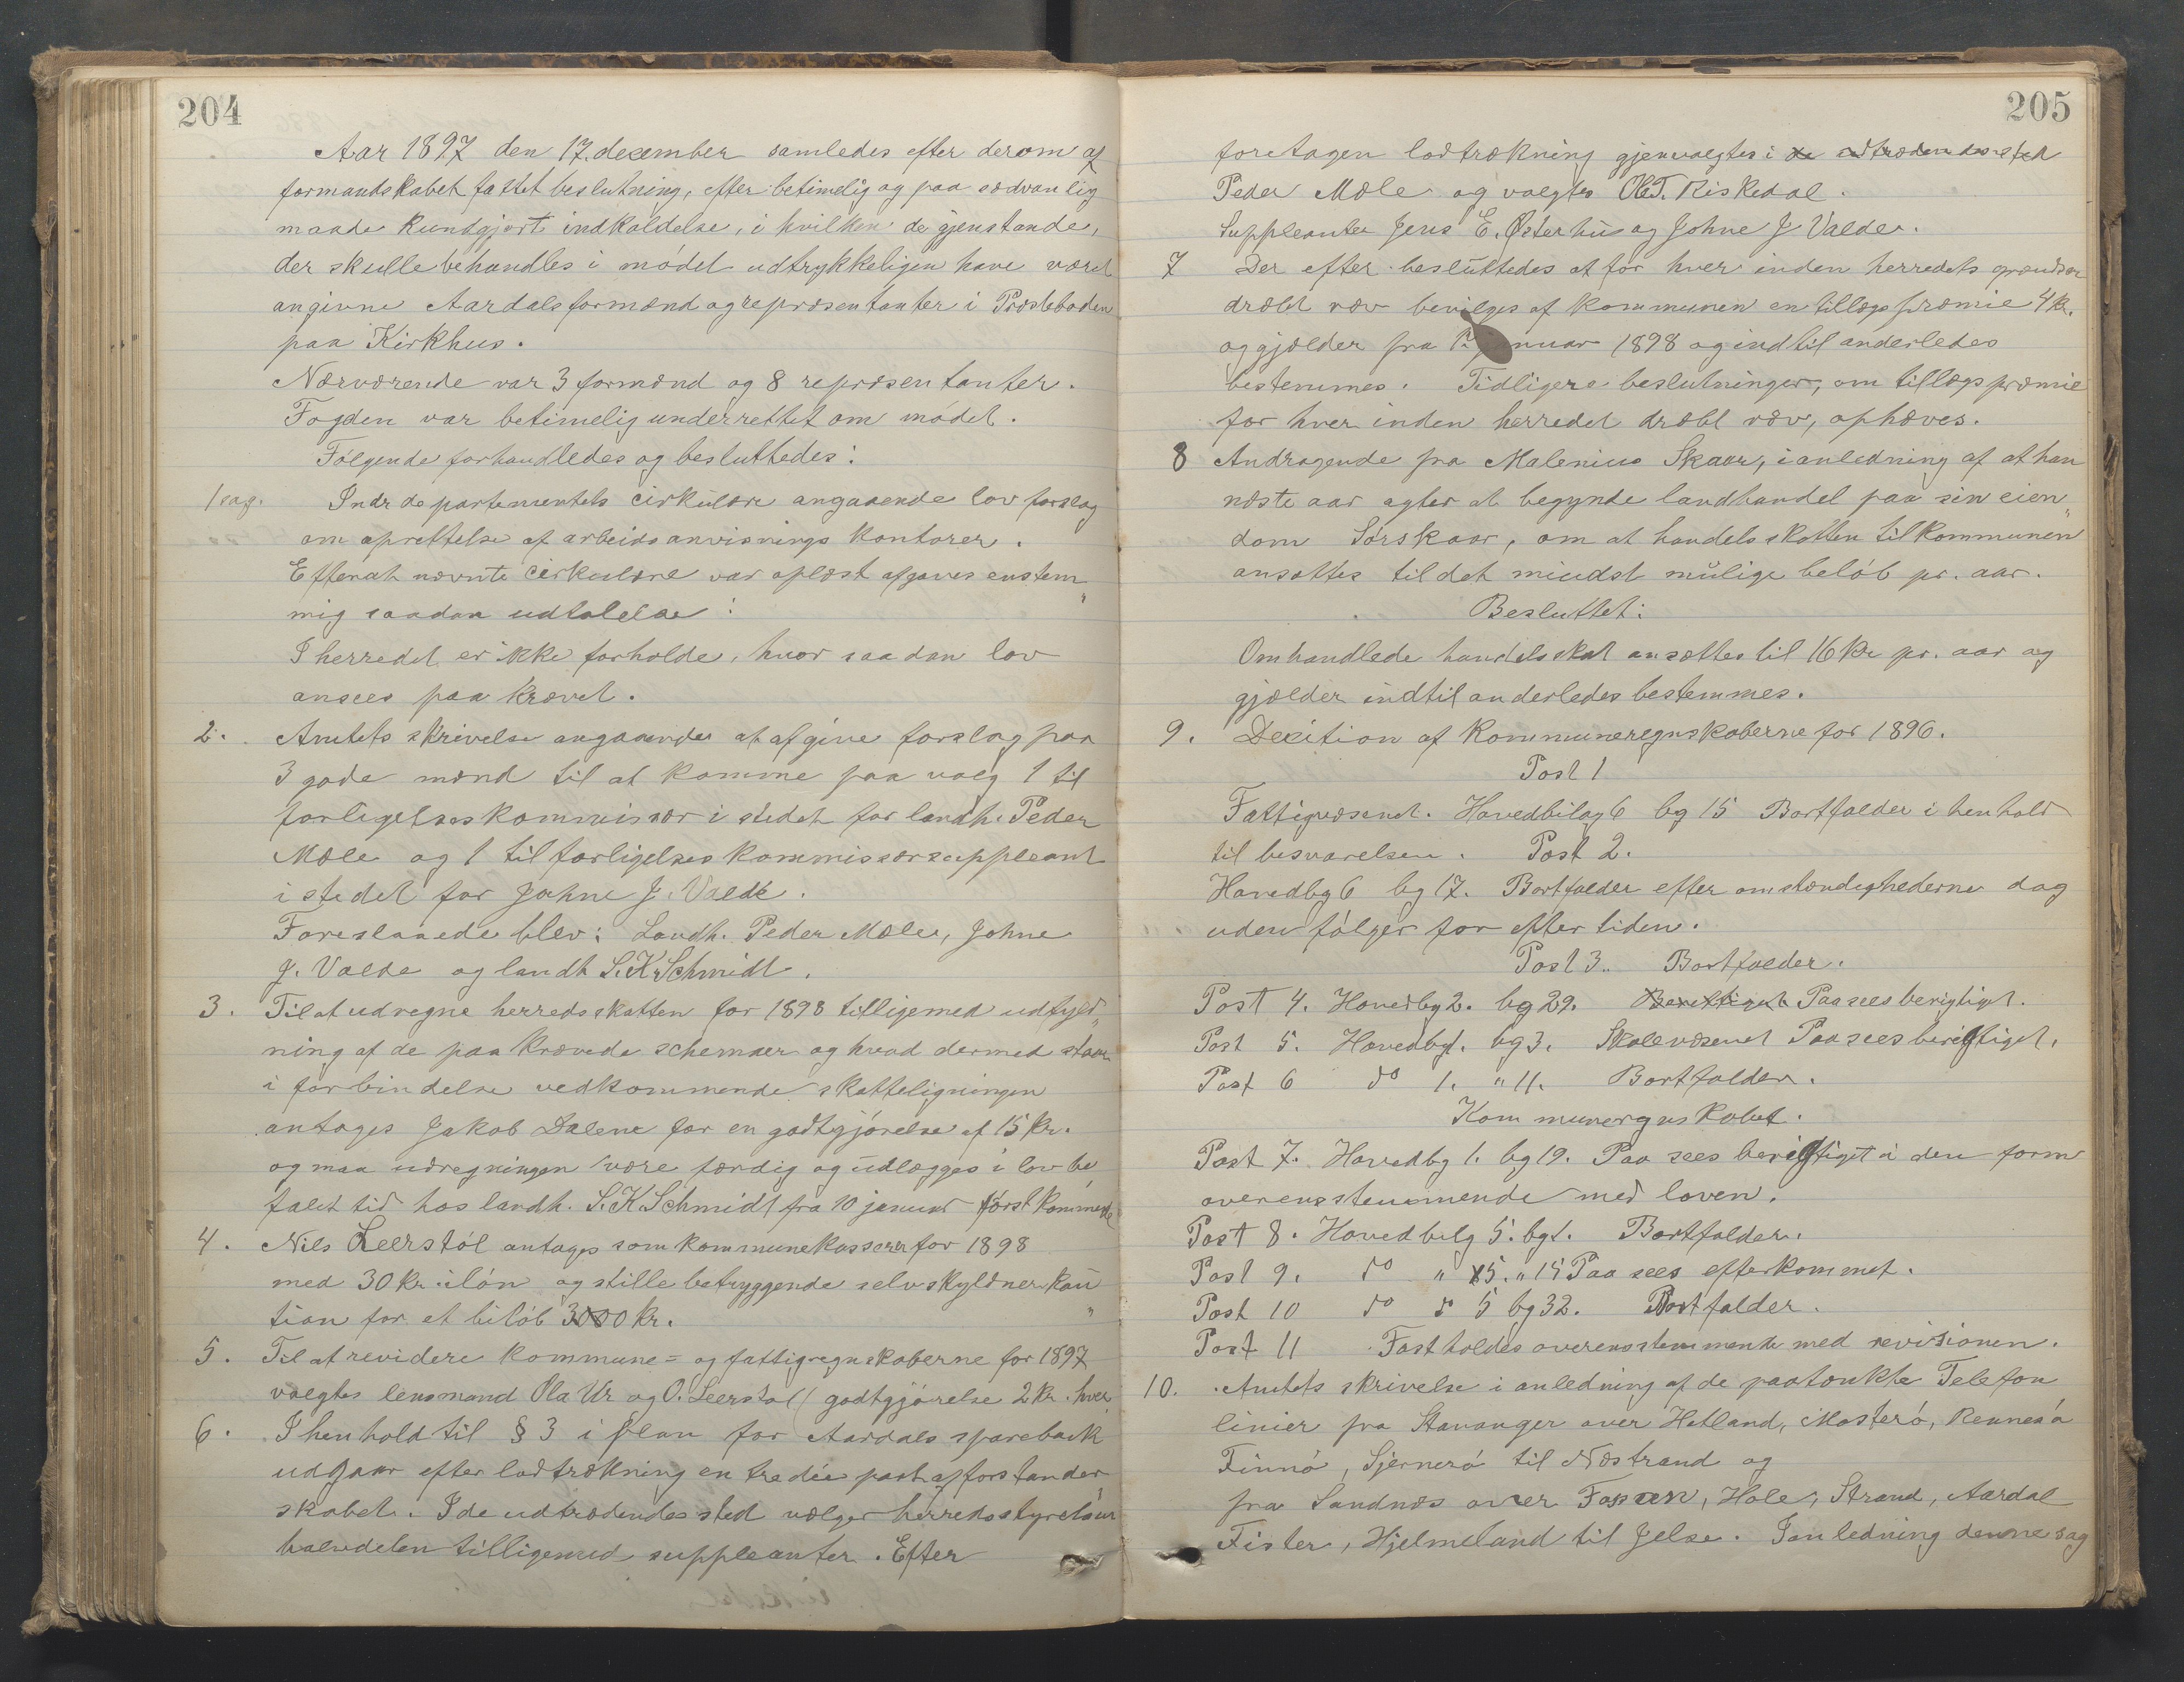 204
Aar 1897 den 17. december samledes efter derom af
formandskabet fattet beslutning, efter betimelig og paa sædvanlig
maade kundgjort indkaldelse, i hvilken de gjenstande,
der skulle behandles i mødet udtrykkeligen have været
angivne Aardals formænd og repræsentanter i Præsteboden
paa Kirkhus.
Nærværende var 3 formænd og 8 repræsentanter.
Fogden var betimelig underrettet om mødet.
Følgende forhandledes og besluttedes:
1 sag. Indr departementets cirkulære angaaende lov forslag
om oprettelse af arbeidsanvisnings kontorer.
Efterat nævnte cirkulære var oplæst afgaves enstem„
mig saadan udtalelse:
I herredet er ikke forholde, hvor saadan lov
ansees paa krævet.
2. Amtets skrivelse angaaende at afgive forslag paa
3 gode mænd til at komme paa valg 1 til
forligelseskommissær i stedet for landh. Peder
Mæle og 1 til forligelseskommissærsuppleant
i stedet for Johne J. Valde.
Foreslaaede blev: Landh. Peder Mæle, Johne
J. Valde og landh S. K. Schmidt.
3. Til at udregne herredsskatten for 1898 tilligemed udfyld„
ning af de paa krævede schemaer og hvad dermed staar
i forbindelse vedkommende skatteligningen
antages Jakob Dalene for en godtgjørelse af 15 kr.
og maa udregningen være færdig og udlægges i lov be
falet tid hos landh. S. K. Schmidt fra 10 januar førstkommende
4. Nils Leerstøl antages som kommunekasserer for 1898
med 30 kr. i løn og stille betryggende selvskyldner kau„
tion for et beløb 3000 kr.
5. Til at revidere kommune= og fattigregnskaberne for 1897
valgtes lensmand Ola Ur og O. Leerstøl (godtgjørelse 2 kr. hver
6. I henhold til § 3 i plan for Aardals sparebank
udgaar efter lodtrækning en tredie part af forstander„
skabet. I de udtrædendes sted vælger herredsstyrelsen
halvdelen tilligemed suppleanter. Efter
205
foretagen lodtrækning gjenvalgtes i de udtrædendes sted
Peder Mæle og valgtes Ole T. Riskedal.
Suppleanter Jens E. Østerhus og Johne J Valde.
7 Der efter besluttedes at for hver inden herredets grændser
dræbt ræv bevilges af kommunen en tillægspræmie 4 kr.
og gjælder fra 1. januar 1898 og indtil anderledes
bestemmes. Tidligere beslutninger, om tillægspræmie
for hver inden herredet dræbt ræv, ophæves.
8 Andragende fra Malenius Skaar, i anledning af at han
næste aar agter at begynde landhandel paa sin eien„
dom Sørskaar, om at handelsskatten til kommunen
ansættes til det mindst mulige beløb pr. aar.
Besluttet:
Omhandlede handelsskat ansættes til 16 kr pr. aar og
gjælder indtil anderledes bestemmes.
9. Decition af kommuneregnskaberne for 1896.
Post 1
Fattigvæsenet. Hovedbilag 6 bg 15 Bortfalder i henhold
til besvarelsen. Post 2.
Hovedbg 6 bg 17. Bortfalder efter omstændighederne dog
uden følger for eftertiden.
Post 3.. Bortfalder.
Post 4. Hovedbg 2. bg 29. Berettiget Paasees berigtiget.
Post 5. Hovedbg 1. bg 3. Skolevæsenet Paasees berigtiget.
Post 6 do 1. " 11. Bortfalder.
Kommuneregnskabet.
Post 7. Hovedbg 1. bg 19. Paa sees berigtiget i den form
overensstemmende med loven.
Post 8. Hovedbilg 5. bg 1. Bortfalder.
Post 9. do " 5. " 15 Paa sees efterkommet.
Post 10 do do 5 bg 32. Bortfalder.
Post 11 Fastholdes overensstemmende med revisionen.
10. Amtets skrivelse i anledning af de paatænkte Telefon
linier fra Stavanger over Hetland, Mosterø, Rennesø
Finnø, Sjernerø til Næstrand og
fra Sandnæs over Fossan, Hole, Strand, Aardal
Fister, Hjelmeland til Jelse. I anledning denne sag